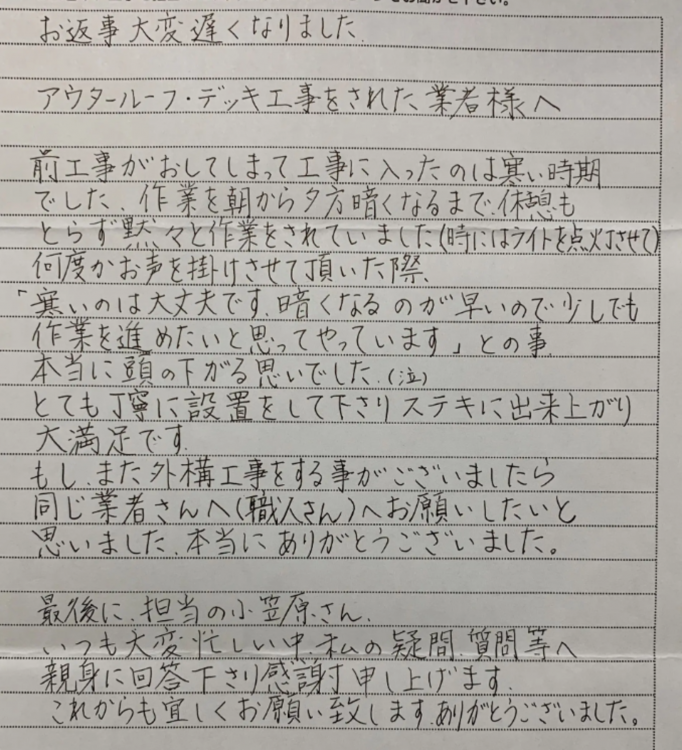 お聞かせ下さい。
お返事大変遅くなりました.
アウタールーフ・デッキ工事をされた業者様へ
前工事がおしてしまって工事に入ったのは寒い時期
でした.作業を朝から夕方暗くなるまで.休憩も
とらず黙々と作業をされていました(時にはライトを点灯させて)
何度かお声を掛けさせて頂いた際、
「寒いのは大丈夫です.暗くなるのが早いので少しでも
作業を進めたいと思ってやっています」との事.
本当に頭の下がる思いでした.(泣)
とても丁寧に設置をして下さりステキに出来上がり
大満足です.
もし.また外構工事をする事がございましたら
同じ業者さんへ(職人さん)へお願いしたいと
思いました.本当にありがとうございました。
最後に.担当の小笠原さん.
いつも大変忙しい中.私の疑問.質問等へ
親身に回答下さり感謝申し上げます.
これからも宜しくお願い致します.ありがとうございました。